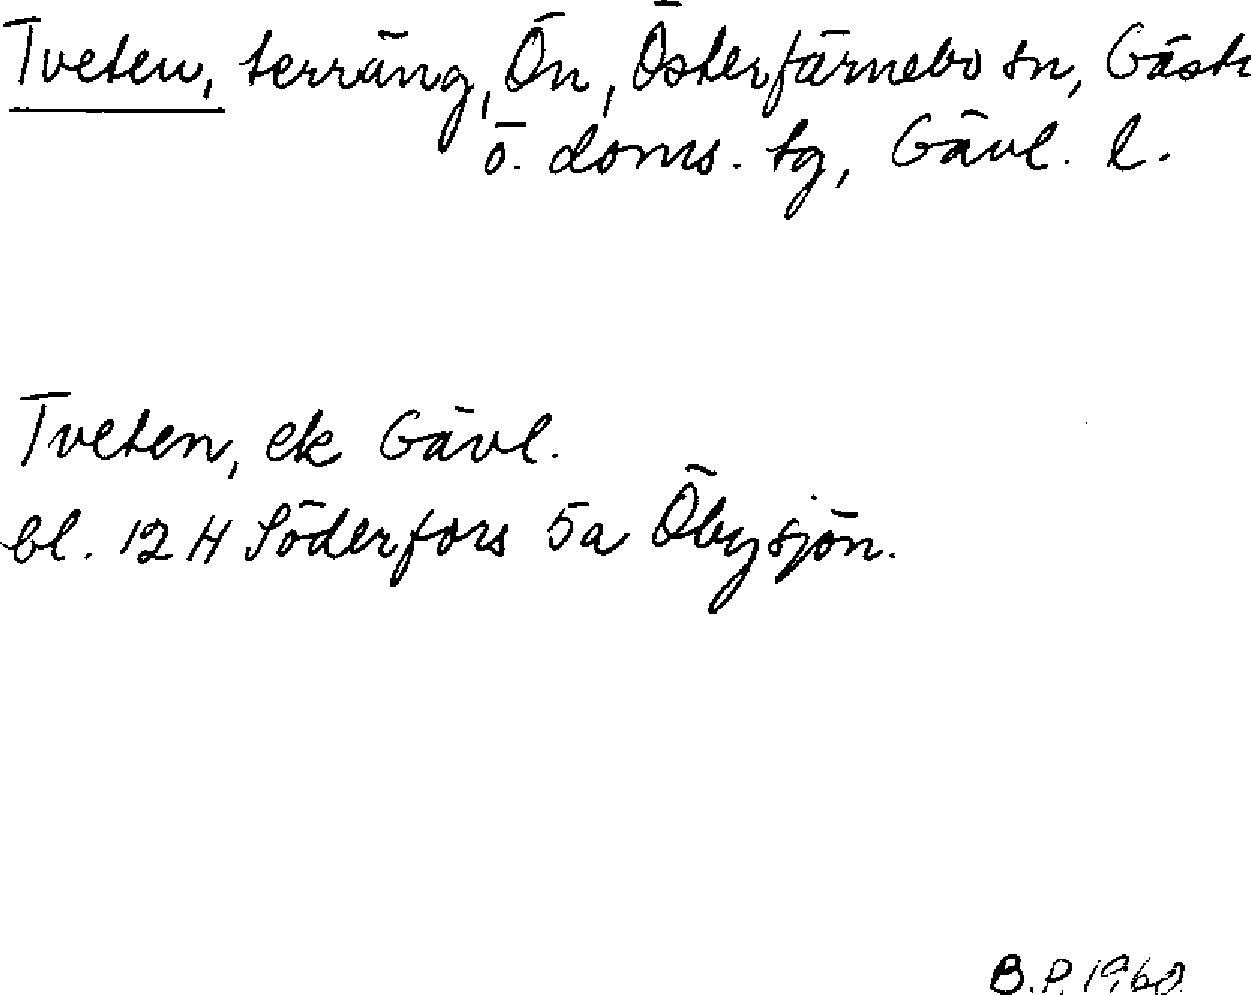 Tveten, terräng, Ön, Österfärnebo sn, Gästr
ö. doms. tg, Gävl. l.
Tveten, ek Gävl.
bl. 12 H Söderfors 5a Öbysjön.
B.P. 1960